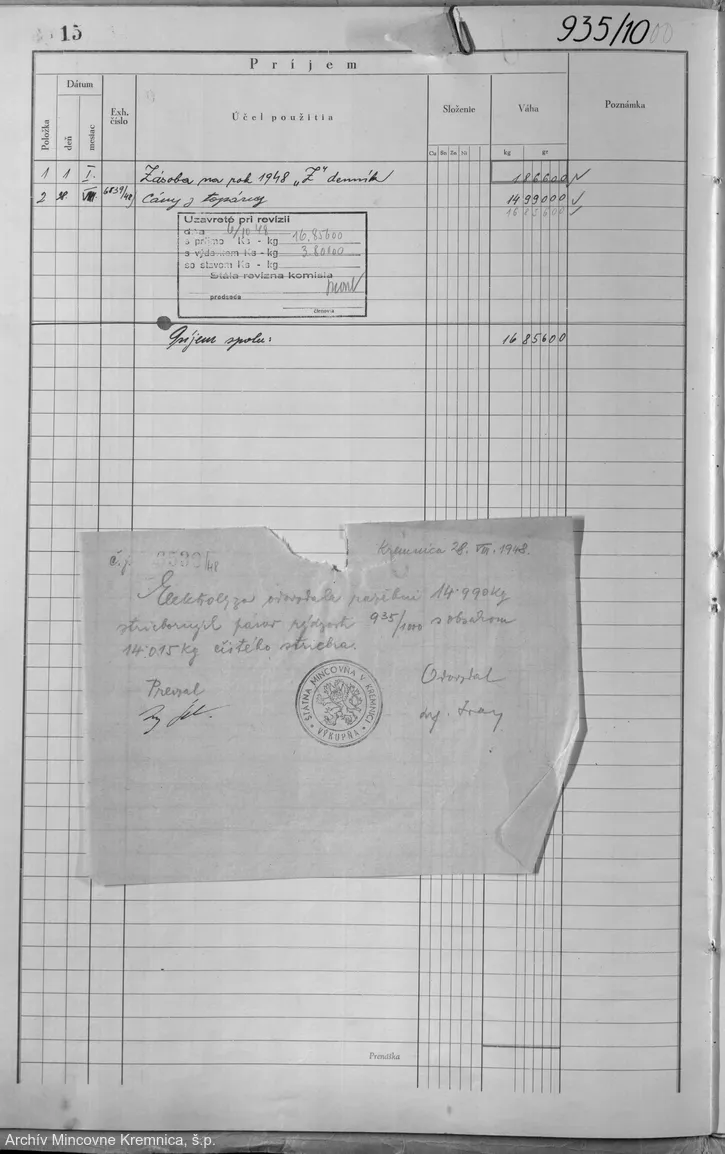 15
935/1000
Príjem
Položka
Dátum
deň
mesiac
Exh. číslo
Účel použitia
Složente
Cu Sn Zn Ni
Váha
kg gr
Poznámka
1 1 I. Zásoba na rok 1948 „Z" denník 186600
2 28. VIII. 6839/48 Cány z 1499000
1685600
Uzavreté pri revízii
dňa 4/10 48
s príjmo Ks - kg 16.85600
s výdavkom Ks - kg 3.80800
so stavom Ks - kg
Stála revízna komisia
predseda
členovia
Príjem spolu: 1685600
č.j. /48
Kremnica 28. VIII. 1948.
Elektolyza odovzdala 14.990 kg
935/1000 s obsahom
14.015 kg čistého striebra.
Prevzal
Odovzdal
ŠTÁTNA MINCOVŇA V KREMNICI
VÝKUPŇA
Prenáška
Archív Mincovne Kremnica, š.p.